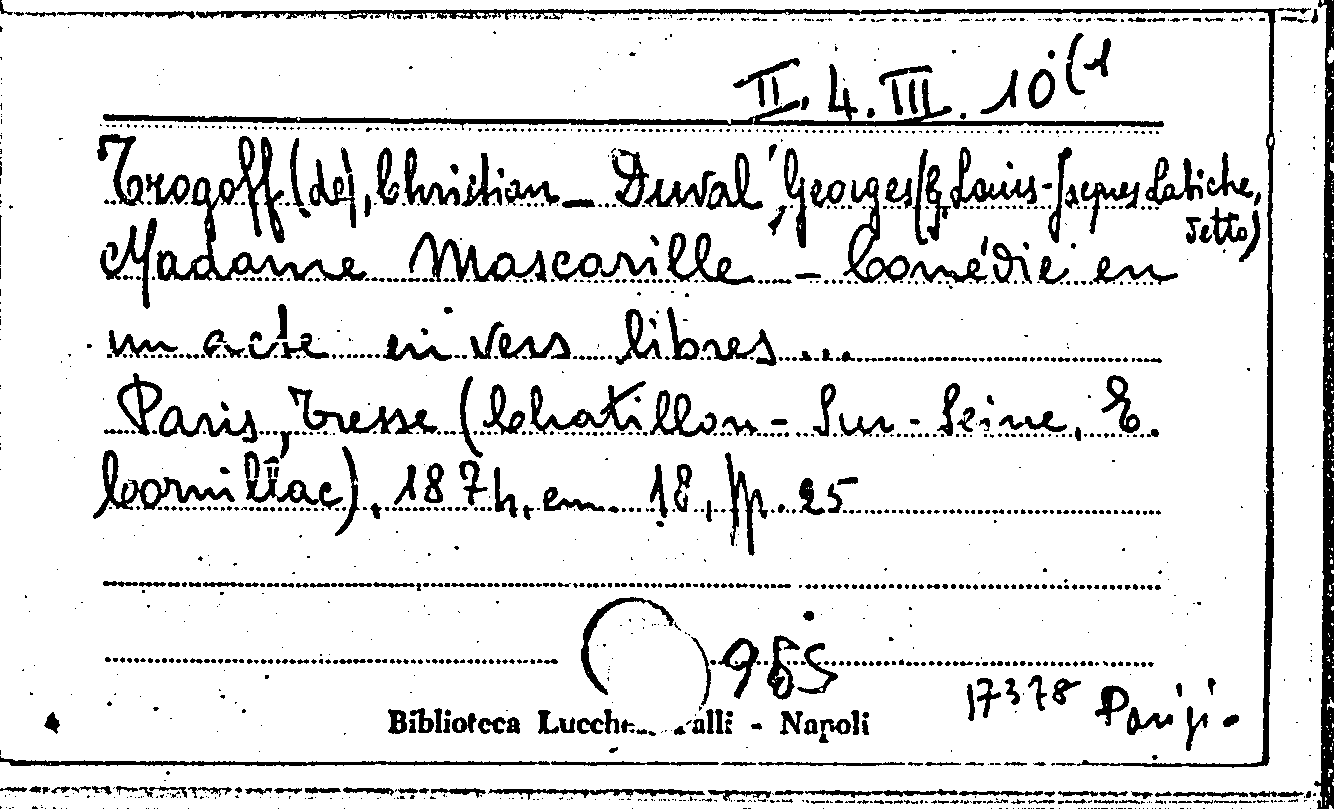 II. 4. III. 10 (1
Trogoff (de), Christian - Duval, Georges (G. Louis-Jacques Labiche,
detto)
Madame Mascarille - Comédie en
un acte en vers libres...
Paris, Tresse (Chatillon-Sur-Seine, E.
Cornillac), 1874, em. 18, pp. 25
965
17378 Parigi.
Biblioteca Lucche alli - Napoli